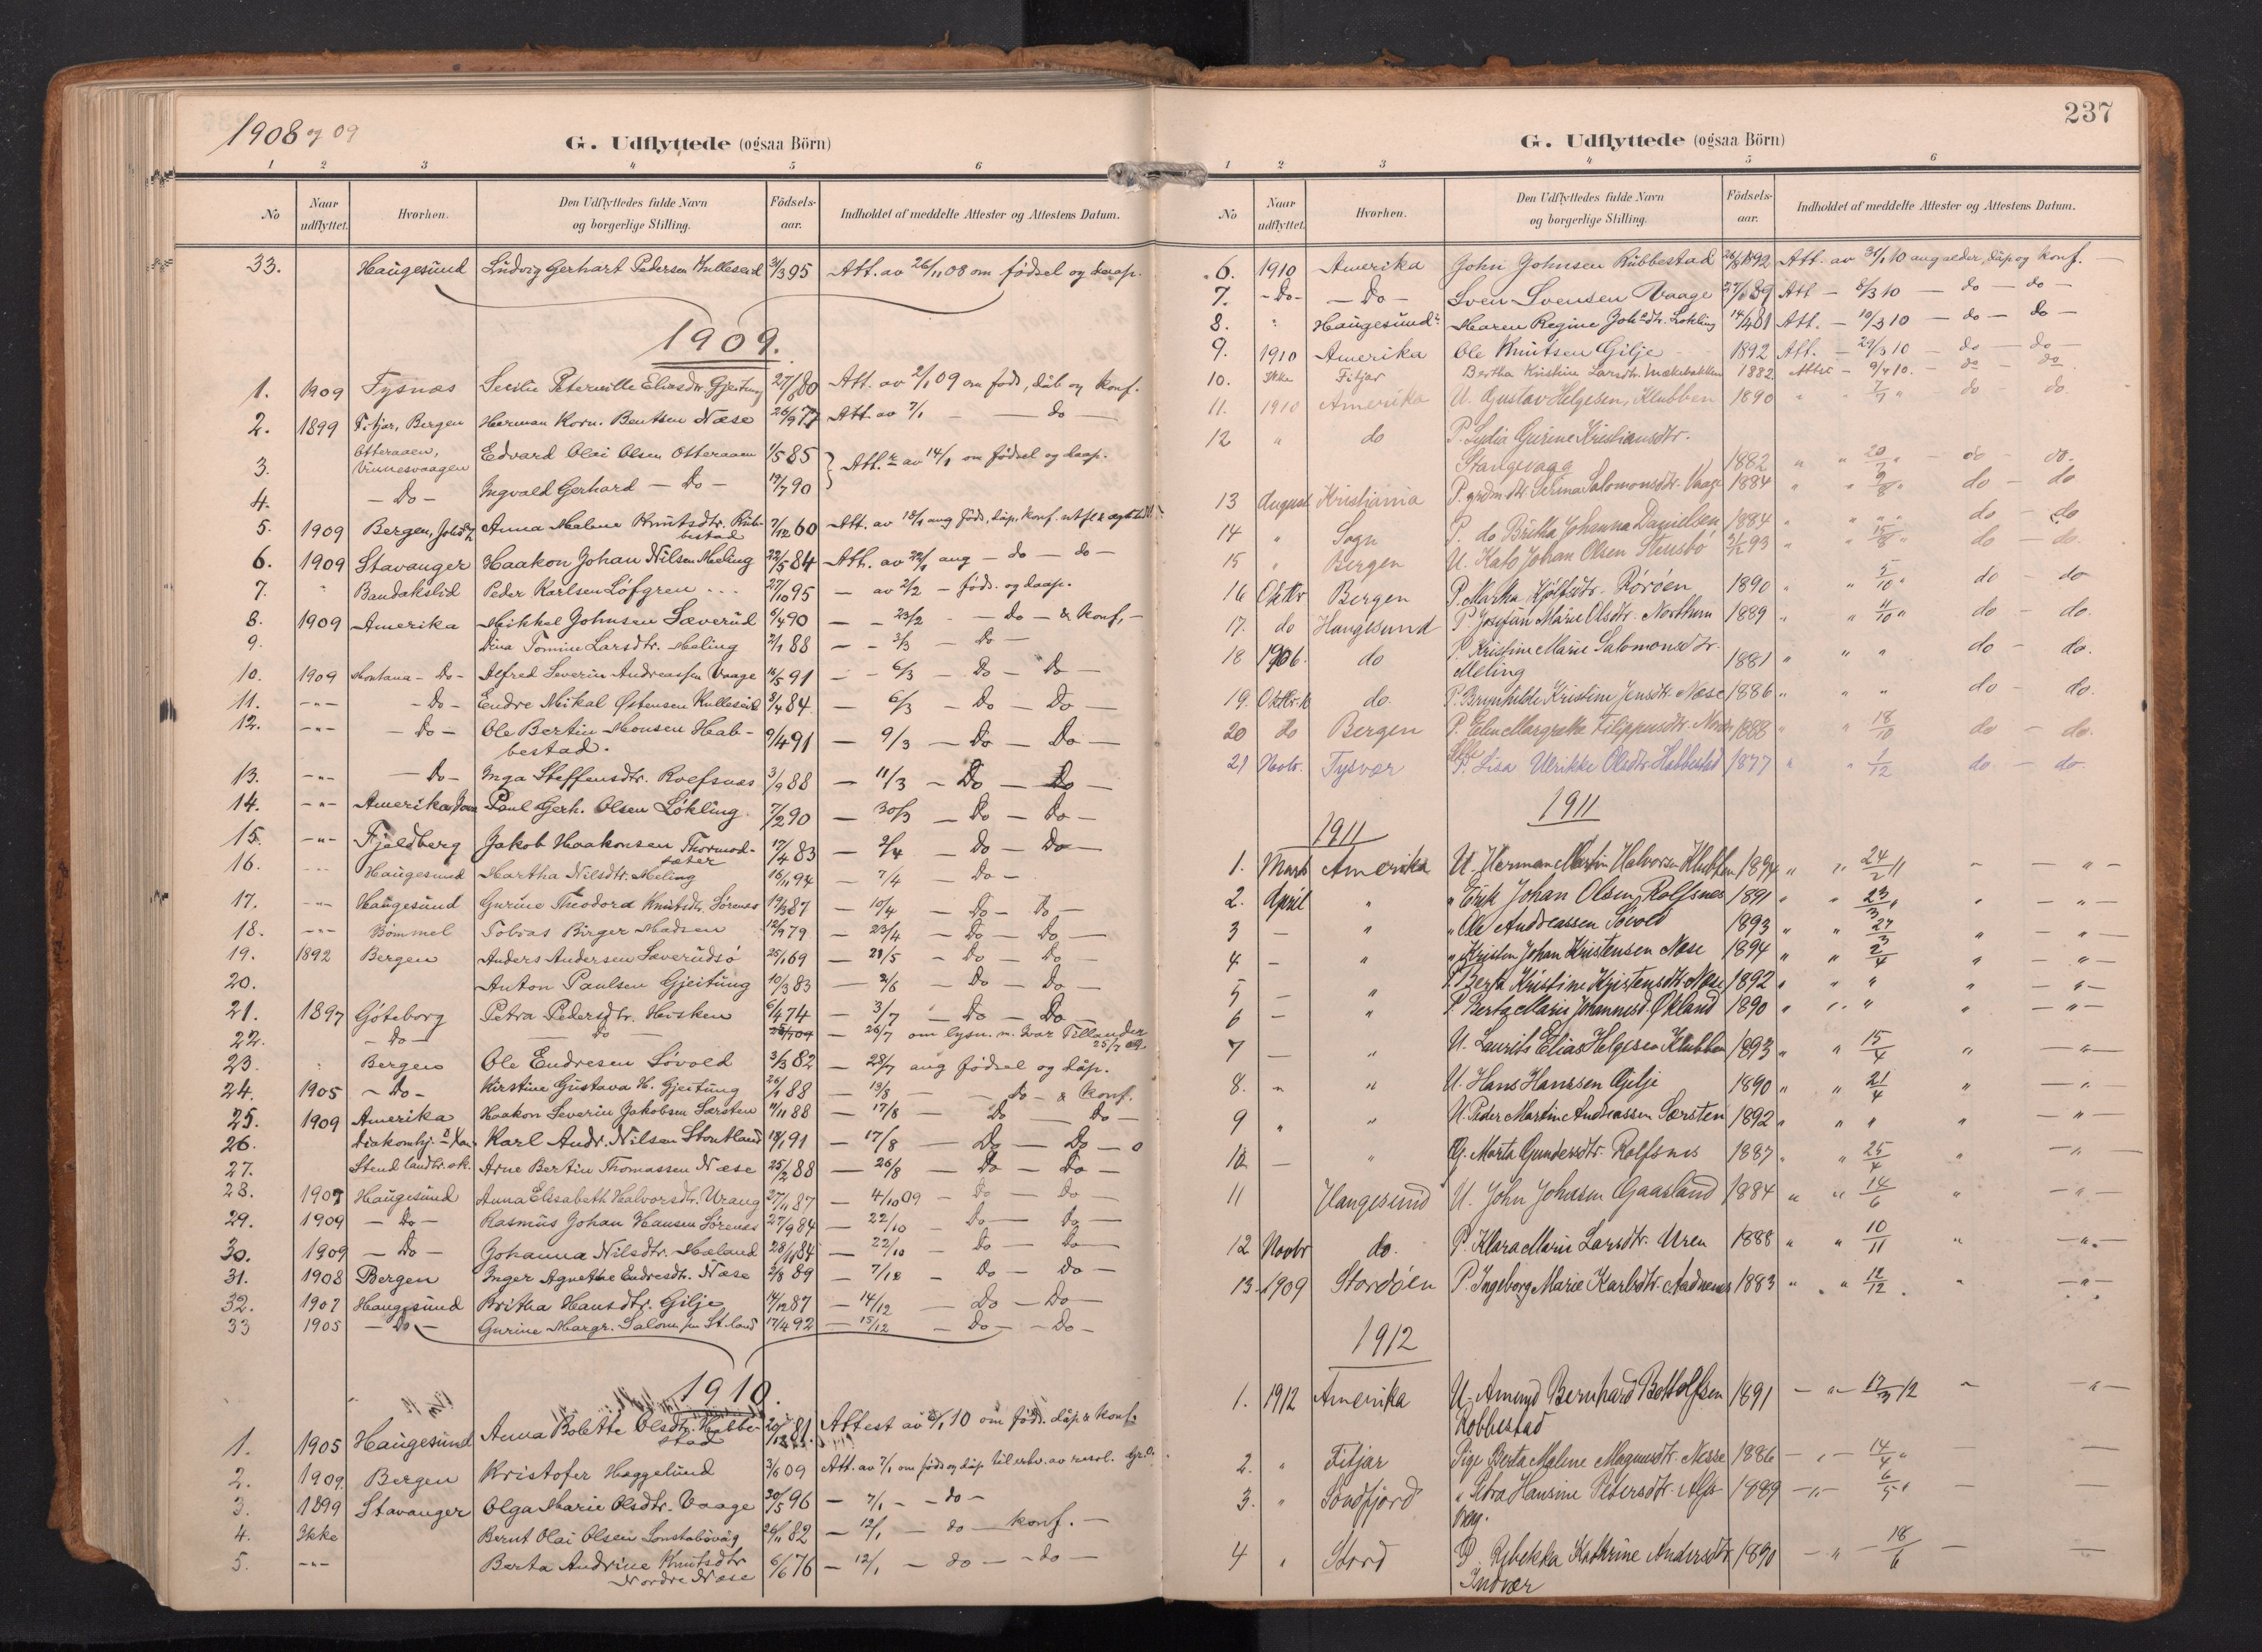 1908 og 09
G. Udflyttede (ogsaa Börn)
1 2 3 4 5 6
No Naar udflyttet. Hvorhen. Den Udflyttedes fulde Navn og borgerlige Stilling. Födsels-aar. Indholdet af meddelte Attester og Attestens Datum.
33. Haugesund Ludvig Gerhart Pedersen Kulleseid 31/3 95 Att. av 26/11 08 om födsel og daap.
1909.
1. 1909 Tysnæs 27/ 80 Att. av 2/1 09 om föds, dåb og konf.
2. 1899 Fitjar, Bergen Herman Korn. Bentsen Næse 26/9 77 Att. av 7/1 — do —
3. Otteraaen, Vinnesvaagen Edvard Olai Olsen Otteraaen 1/5 85 Att.r av 14/1 om födsel og daap.
4. — Do — Ingvald Gerhard — Do — 19/7 90
5. 1909 Bergen, Anna Malene Knutsdtr. Rub-
bestad 7/12 60 Att. av 18/1 ang föds, dåp, konf.
6. 1909 Stavanger Haakon Johan Nilsen Meling 22/5 84 Att. av 22/1 ang — do — do —
7. " Bandakslid Peder Karlsen Löfgren 27/10 95 — av 2/2 — föds. og daap.
8. 1909 Amerika Mikkel Johnsen Sæverud 6/4 90 — - 23/2 — Do — & konf. -
9. Dina Tomine Larsdtr. Meling 2/1 88 — - 3/3 — Do —
10. 1909 Montana - Do - Alfred Severin Andreassen Vaage 16/5 91 — - 6/3 — Do — Do —
11. -"- - Do - Endre Mikal Östensen Kulleseid 8/4 84 — 6/3 — Do — Do —
12. -"- — Do - Ole Bertin Monsen Hab-
bestad. 9/4 91 — 9/3 — Do — Do —
13. -"- — Do - Inga Steffensdtr. Roefsnæs 3/9 88 — 11/3 — Do — Do —
14. -"- Amerika, Paul Gerh. Olsen Lökling. 7/2 90 — 30/3 — Do — Do —
15. -"- Fjeldberg Jakob Haakonsen Thormod-
sæter 17/4 83 — 2/4 — Do — Do —
16. -"- Haugesund Martha Nilsdtr. Meling 16/11 94 — 7/4 — Do —
17. -"- Haugesund Gurine Theodora Knutsdtr. Sörenæs 19/3 87 — 10/4 — Do — Do —
18. -"- Bömmel Tobias Birger Madsen 12/9 79 — 23/4 — Do — Do —
19. 1892 Bergen Anders Andersen Sæverudsö 25/1 69 — 28/5 — Do — Do —
20. Anton Paulsen Gjeitung 10/3 83 — 2/6 — Do — Do —
21. 1897 Göteborg Petra Pedersdtr. Hovsken 6/4 74 — 3/7 — Do — Do —
22. — Do — — Do — 25/7 09 — 26/7 om lysn. m. Ivar Tillander
23. " Bergen Ole Endresen Sövold 3/3 82 — 28/7 ang födsel og dåp.
24. 1905 — Do — Kirstine Gustava H. Gjeitung 26/1 88 — 13/8 — — Do — & konf.
25. 1909 Amerika Haakon Severin Jakobsen Særsten 11/11 88 — 17/8 — Do — Do —
26. Diakonhj. Karl Andr. Nilsen Stoutland 18/1 91 — 17/8 — Do — Do —
27. Stend landbr.sk. Arne Bertin Thomassen Næse 25/2 88 — 26/8 — Do — Do —
28. 1907 Haugesund Anna Elisabeth Halvorsdtr. Urang 27/11 87 — 4/10 09 — Do — Do —
29. 1909 — Do — Rasmus Johan Hansen Sörenæs 27/9 84 — 22/10 — Do — Do —
30. 1909 — Do — Johanna Nilsdtr. Mæland 28/ 84 — 22/10 — Do — Do —
31. 1908 Bergen Inger Agnethe Endresdtr. Næse 2/8 89 — — Do — Do —
32. 1907 Haugesund Britha Hansdtr. Gilje 14/12 87 — 14/12 — Do — Do —
33 1905 — Do — Gurine Margr. St.land 17/4 92 — 15/12 — Do — Do —
1910.
1. 1905 Haugesund Anna Bolette Olsdtr. Habbe-
stad 20/12 81. Attest av 10 om föds. dåp & konf.
2. 1909. Bergen Kristofer Hæggelund 3/6 09 Att. av 7/1 om föds og dåp til erhv. av
3. 1899 Stavanger Olga Marie Olsdtr. Vaage 20/5 96 — 7/1 — - do -
4. Ikke Bernt Olai Olsen 26/11 82 — 12/1 — do — konf. —
5. -"- Berta Andrine Knutsdtr
Nordre Næse 6/6 76 — 12/1 — do — - do —
237
G. Udflyttede (ogsaa Börn)
1 2 3 4 5 6
No Naar udflyttet. Hvorhen. Den Udflyttedes fulde Navn og borgerlige Stilling. Födsels-aar. Indholdet af meddelte Attester og Attestens Datum.
6. 1910 Amerika John Johnsen Rubbestad 1892 Att. av 31/1 10 ang alder, dåp og konf. —
7. - Do - — Do — Sven Svensen Vaage 89 Att — 8/3 10 — do — do —
8. " Haugesund Maren Regine Joh.dtr. Lökling 14/4 81 Att. — 10/3 10 — do — do —
9. 1910 Amerika Ole Knutsen Gilje 1892 Att. — 29/3 10 — do — do —
10. Ikke Fitjar Bertha Kristine Larsdtr. 1882 Attest — 9/4 10. — do — do
11. 1910 Amerika U. Gustav Helgesen, Klubben 1890 " " 7/7 " — do — do.
12 " do P. Lydia Gurine Kristiansdtr.
Stangevaag 1882 " " 20/7 " — do — do.
13 August Kristiania P. Serina Salomonsdtr. Vaage 1884 " " 9/8 do — do
14 " Sogn P. do Britha Johanna Danielsen 1884 " " " do — do
15 " Bergen U. Kato Johan Olsen Stensbö 93 " " 15/8 " do — do.
16 Oktbr Bergen P. Martha Kjölfsdtr. Röröen 1890 " " 5/10 " do — do
17. do Haugesund P. Josefine Marie Olsdtr. Northun 1889 " " 11/10 " do — do.
18 1906. do P. Kristine Marie Salomonsdtr.
Meling 1881 " " " do — do.
19. do. P. Brynhilde Kristine Jensdtr. Næse 1886 " " " do — do.
20 do Bergen P. Elen Margrethe Filippusdtr. 1888 " " 18/10 do — do.
21 Novbr. Tysvær Lisa Ulrikke Olsdtr. Habbestad 1877 " " 1/12 do — do.
1911
1911
1. Marts Amerika U. Herman Martin Halvorsen Klubben 1894 " " 24/2 11 " — " —
2. April " " Erik Johan Olsen, Rolfsnes 1891 " " 23/3 " " — " —
3 — " " Ole Andreassen Sövold 1893 " " 27/3 " — " —
4 — " " Kristen Johan Kristensen Næse 1894 " " 2/4 " — " —
5 — " P. Berta Kristine Kristensdtr. Næse 1892 " " " " — " —
6 — " P. Berta Marie Johannesd. Økland 1890 " " " " — " —
7 — " U. Laurits Elias Helgesen Klubben 1893 " " 15/4 " — " —
8. " " U. Hans Hanssen Gilje 1890 " " 21/4 " — " —
9 " " U. Peder Martin Andreassen Særsten 1892 " " " " — " —
10 — " G. Marta Gundersdtr. Rolfsnes 1887 " " 25/4 " — " —
11 Haugesund U. John Johnsen Gaasland 1884 " " 14/6 " — " —
12 Novbr do. P. Klara Marie Larsdtr. Uren 1888 " " 10/11 " — " —
13. 1909 Stordöen P. Ingeborg Marie Karlsdtr. Aadnenes 1883 " " 12/12 " — " —
1912
1. 1912 Amerika U. Amund Bernhard Bottolfsen
Robbestad 1891 — " — 17/3 12 " — " —
2. " Fitjar Pige Berta Malene Magnusdtr. Nesse 1886 — " — 14/4 " — —
3. " Söndfjord " Petra Hansine Petersdtr. Alfs-
vaag. 1889 — " — 6/5 " — —
4 " Stord P. Rebekka Kathrine Andersdtr.
Indvær 1890 — " — 18/6 — —